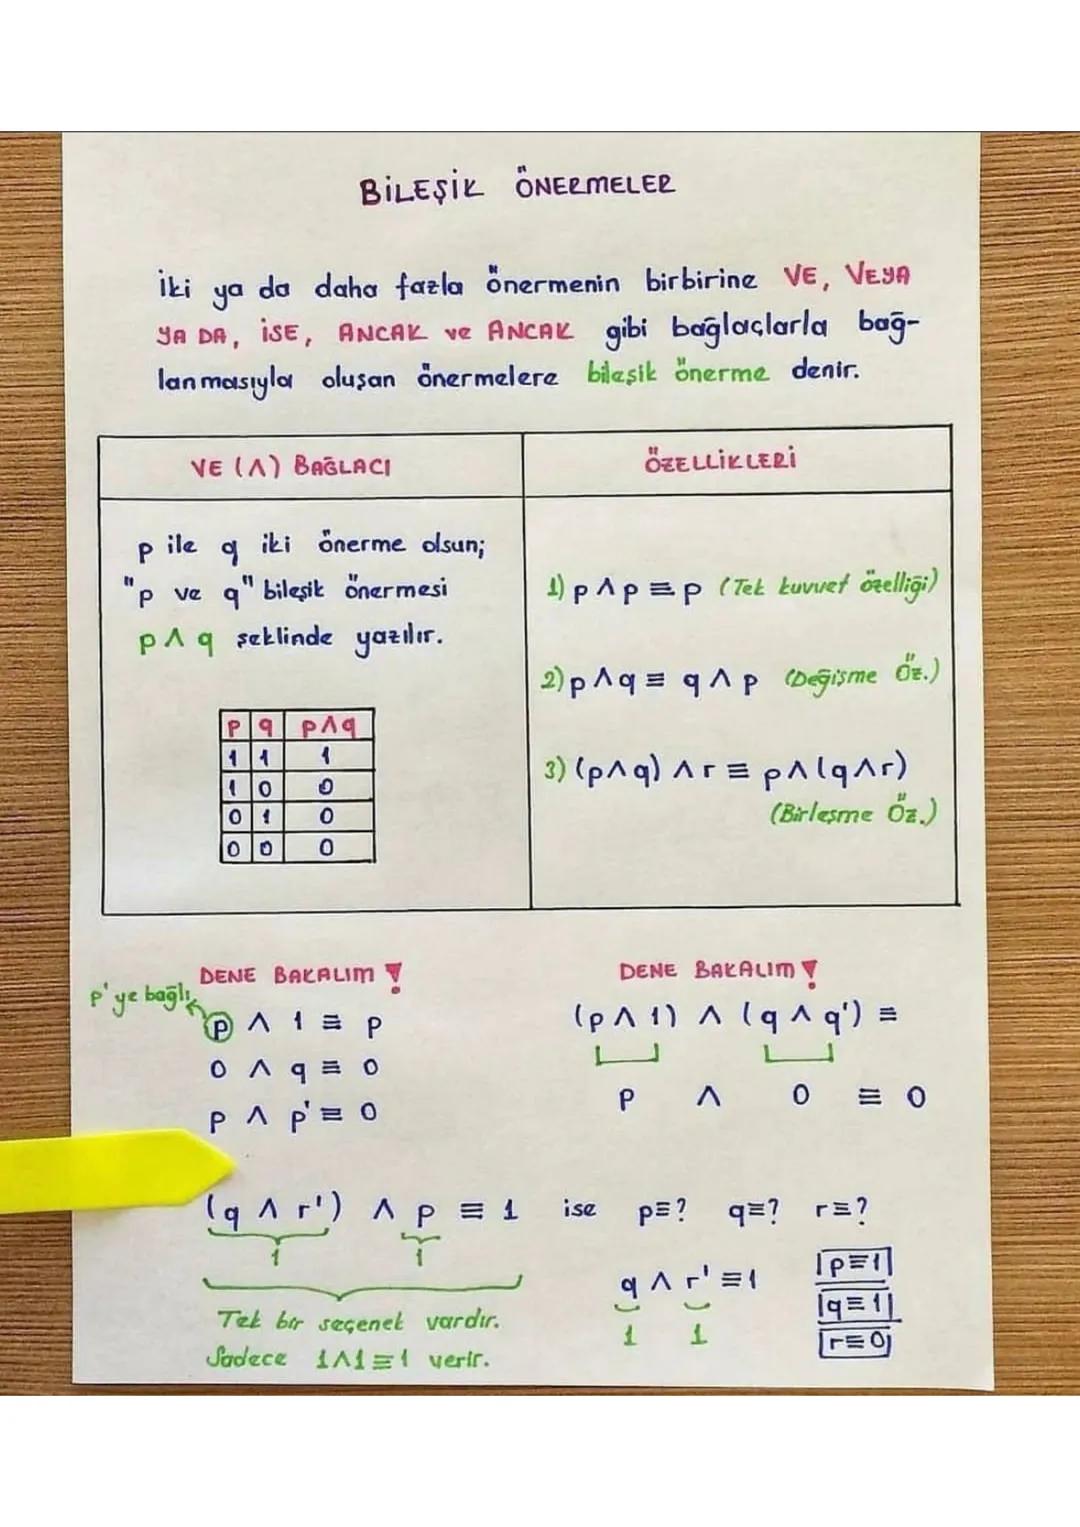 BİLEŞİK ÖNERMELER
İki ya da daha fazla önermenin birbirine VE, VEYA
YA DA, İSE, ANCAK ve ANCAK gibi bağlaçlarla bağ-
lanmasıyla oluşan önermelere bileşik önerme denir.
VE (∧) BAĞLACI
p ile q iki önerme olsun;
"p ve q" bileşik önermesi
p∧q şeklinde yazılır.
p q p∧q
1 1 1
1 0 0
0 1 0
0 0 0
ÖZELLİKLERİ
1) p∧p≡p (Tek kuvvet özelliği)
2) p∧q≡q∧p (Değişme Öz.)
3) (p∧q)∧r≡p∧(q∧r)
(Birleşme Öz.)
DENE BAKALIM !
p'ye bağlı
p ∧ 1 ≡ p
0 ∧ q ≡ 0
p ∧ p' ≡ 0
DENE BAKALIM !
(p∧1) ∧ (q∧q') ≡
p ∧ 0 ≡ 0
(q ∧ r') ∧ p ≡ 1 ise p≡? q≡? r≡?
1 1
Tek bir seçenek vardır.
Sadece 1∧1≡1 verir.
q ∧ r' ≡1
1 1
p≡1
q≡1
r≡0